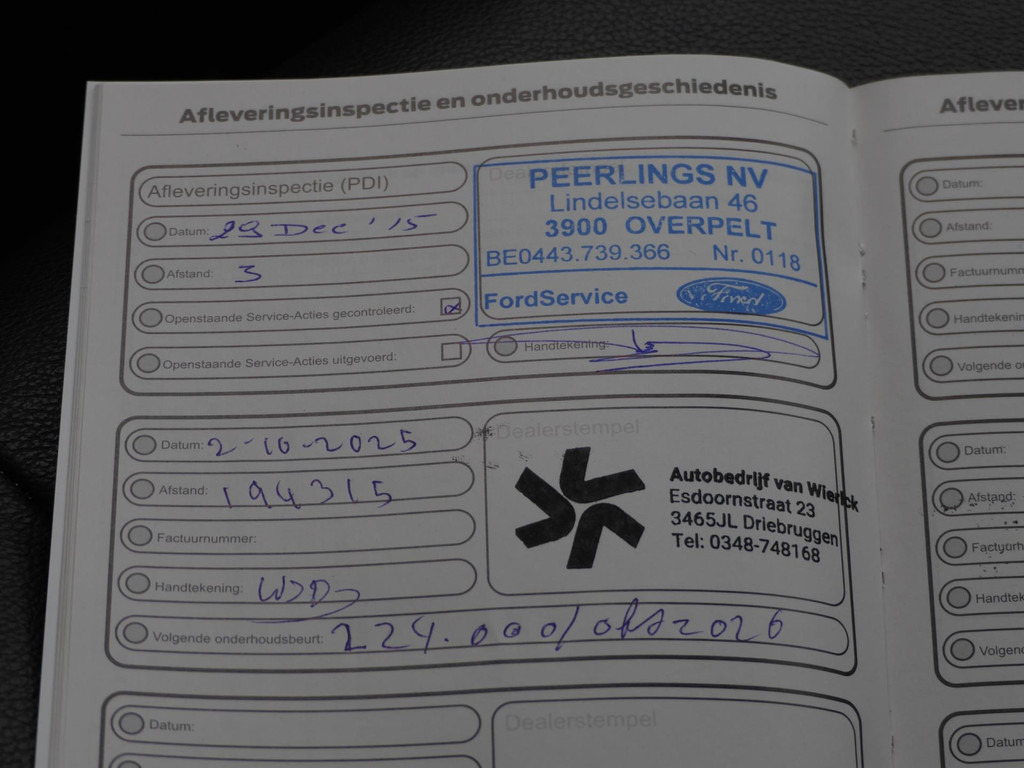 Afleveringsinspectie en onderhoudsgeschiedenis
Afleveringsinspectie (PDI)
Datum: 29 Dec '15
Afstand: 3
Openstaande Service-Acties gecontroleerd:
Openstaande Service-Acties uitgevoerd:
PEERLINGS NV
Lindelsebaan 46
3900 OVERPELT
BE0443.739.366 Nr. 0118
FordService Ford
Handtekening:
Datum: 2-10-2025
Afstand: 194315
Factuurnummer:
Handtekening:
Volgende onderhoudsbeurt: 224.000/okt 2026
Dealerstempel
Autobedrijf van Wierick
Esdoornstraat 23
3465JL Driebruggen
Tel: 0348-748168
Datum:
Dealerstempel
Aflever
Datum:
Afstand:
Factuurnumm
Handtekenin
Volgende o
Datum:
Afstand:
Factuurn
Handtek
Volgen
Datum